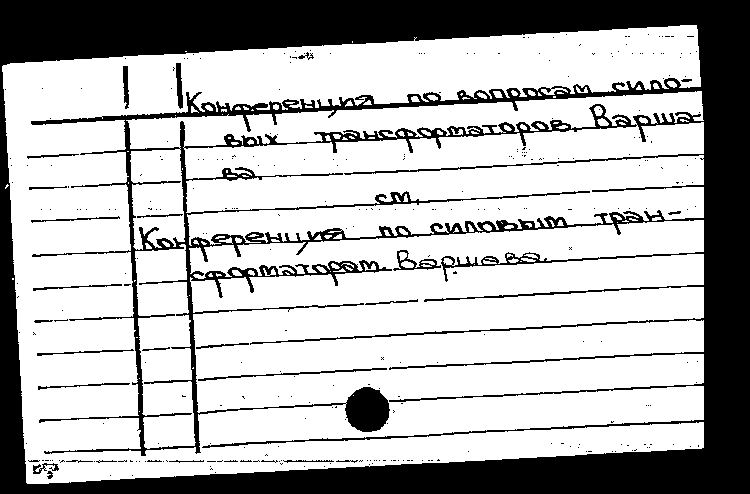 Конференция по вопросам сило-
вых трансформаторов. Варша-
ва.
см.
Конференция по силовым тран-
сформаторам. Варшава.